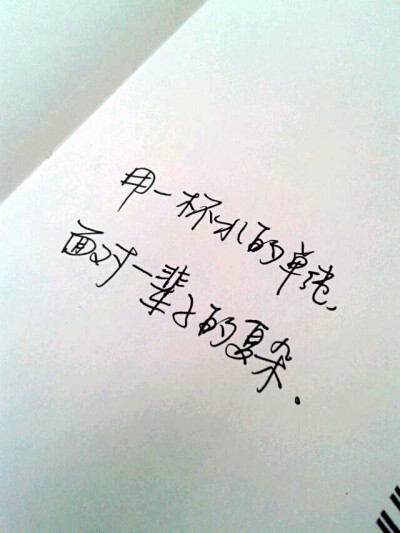 用一杯水的单纯，
面对一辈子的复杂．